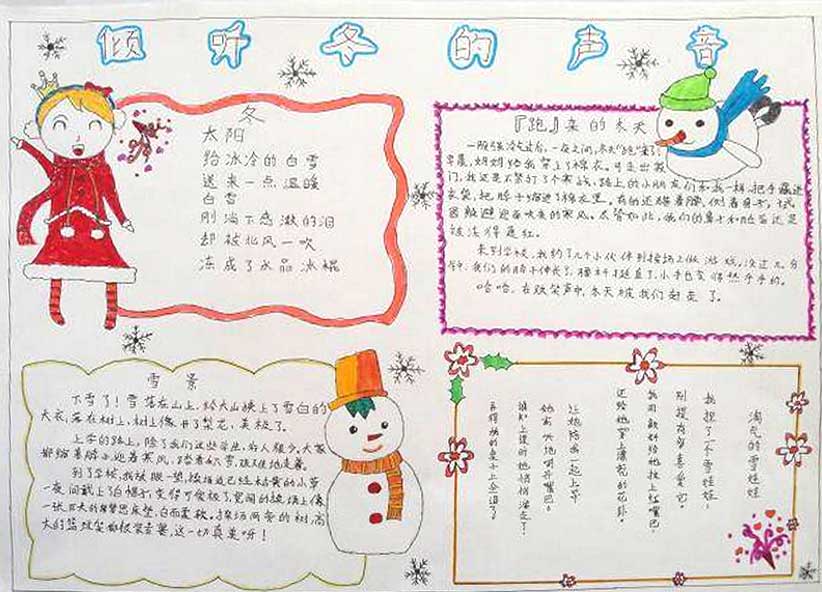 倾听冬的声音
冬
太阳
给冰冷的白雪
送来一点温暖
白雪
刚淌下感激的泪
却被北风一吹
冻成了水晶冰棍
『跑』来的冬天
一股强冷气过后，一夜之间，冬天“跑”来了。
早晨，妈妈给我穿上了棉衣。可走出家
门，我还是不禁打了个寒战。路上的小朋友们和我一样，把手藏进
衣袋，把脖子缩进了棉衣里。有的还猫着腰，侧着身子，试
图躲避迎面吹来的寒风。尽管如此，我们的鼻子和脸蛋还是
被冻得通红。
来到学校，我约了几个小伙伴到操场上做游戏，没过几分
钟，我们的脖子伸长了，腰杆挺直了，小手也变得热乎乎的。
哈哈，在欢笑声中，冬天被我们赶走了。
雪景
下雪了！雪落在山上，给大山换上了雪白的
大衣，落在树上，树上像开了梨花，美极了。
上学的路上，除了我们这些学生，行人很少。大家
都缩着脖子迎着寒风，踏着大雪，艰难地走着。
到了学校，我放眼一望，操场边已经枯黄的小草
一夜间戴上了白帽子，变得可爱极了，宽阔的操场上像
一张巨大的席梦思床垫，白而柔软。操场两旁的树，高
大的篮球架都银装素裹，这一切真美呀！
淘气的雪娃娃
我捏了一个雪娃娃，
别提有多喜爱它。
我用颜料给她按上红嘴巴，
还给她穿上漂亮的花卦。
让她陪我一起上学
她高兴地咧开嘴巴。
谁知上课时她悄悄溜走了，